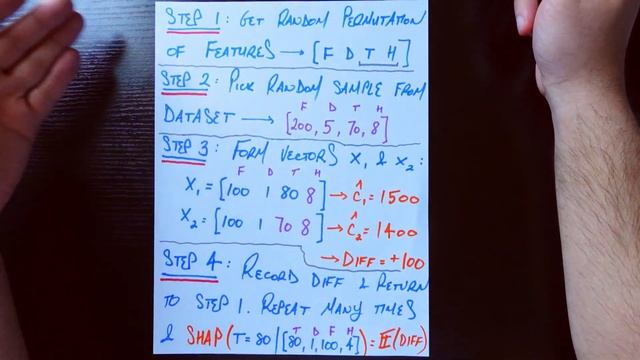 STEP 1: GET RANDOM PERMUTATION
OF FEATURES → [F D T H]
STEP 2: PICK RANDOM SAMPLE FROM
F D T H
DATASET → [200, 5, 70, 8]
STEP 3: FORM VECTORS X₁ & X₂:
F D T H
X₁ = [100 1 80 8] → Ĉ₁ = 1500
X₂ = [100 1 70 8] → Ĉ₂ = 1400
→ DIFF = +100
STEP 4: RECORD DIFF & RETURN
TO STEP 1. REPEAT MANY TIMES
T D F H
& SHAP(T=80 | [80, 1, 100, 4]) = E(DIFF)